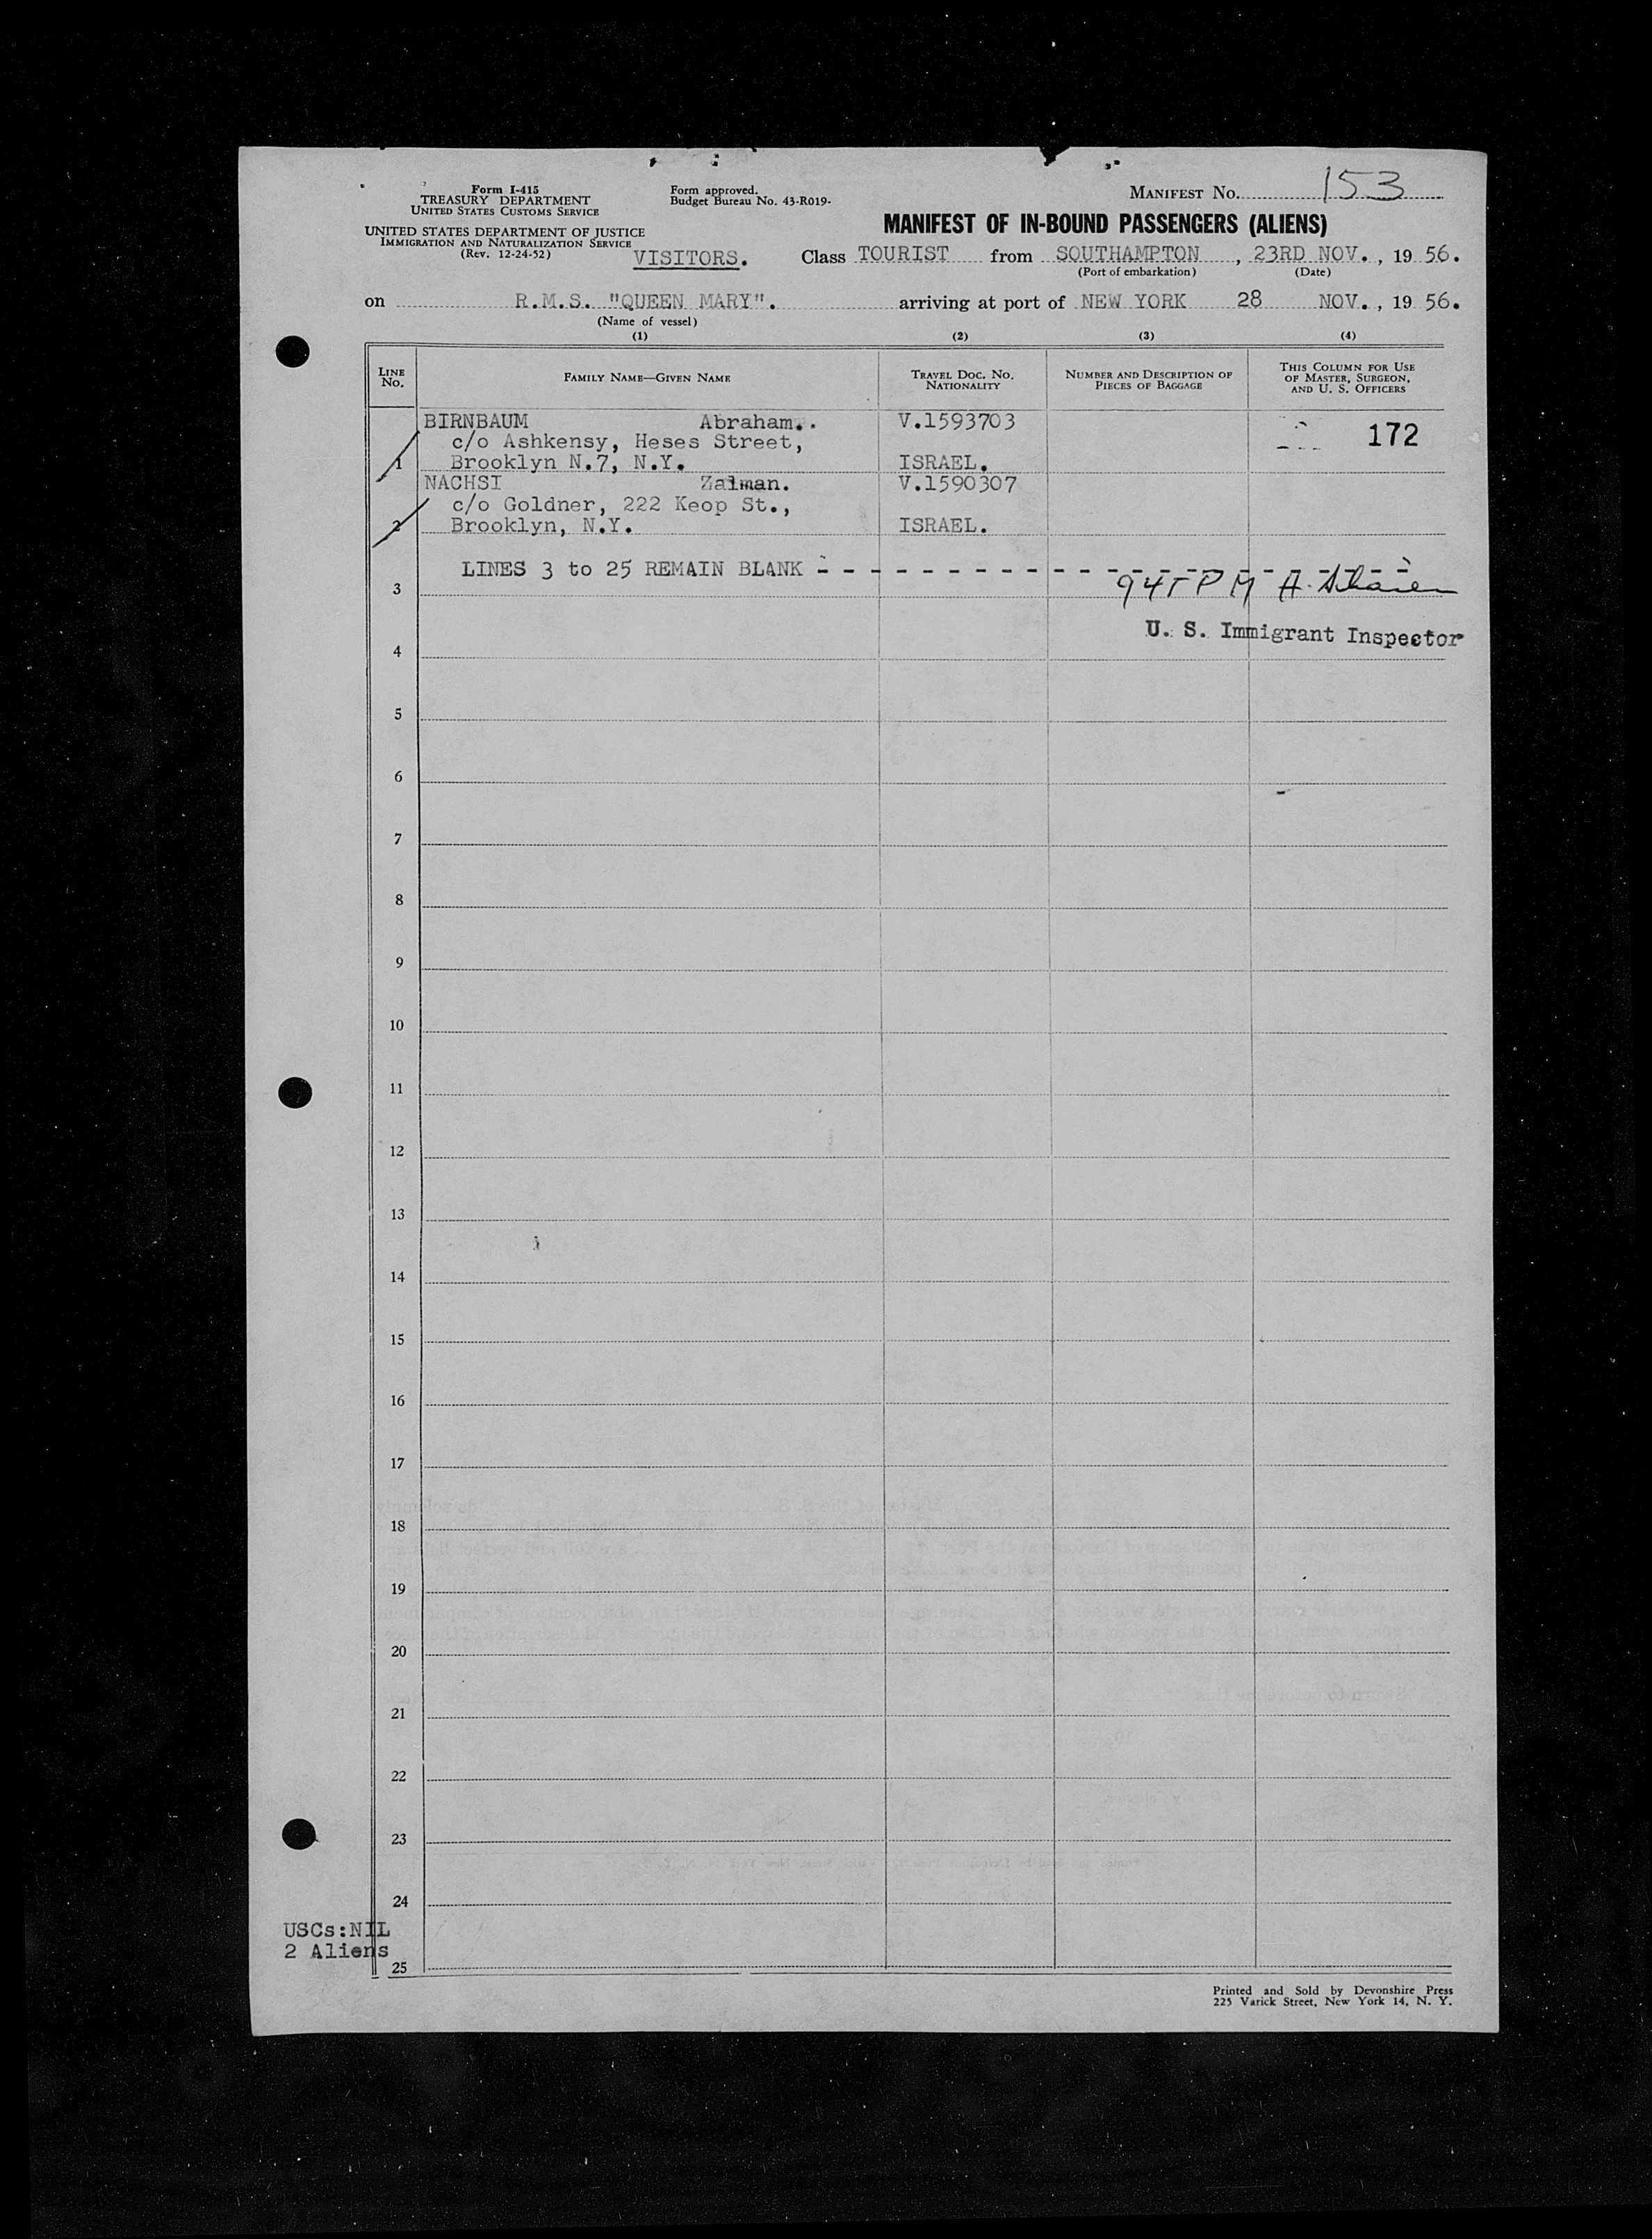 Form I-415
TREASURY DEPARTMENT
UNITED STATES CUSTOMS SERVICE
UNITED STATES DEPARTMENT OF JUSTICE
IMMIGRATION AND NATURALIZATION SERVICE
(Rev. 12-24-52)
Form approved.
Budget Bureau No. 43-R019-
MANIFEST No. 153
MANIFEST OF IN-BOUND PASSENGERS (ALIENS)
VISITORS. Class TOURIST from SOUTHAMPTON, 23RD NOV., 19 56.
(Port of embarkation) (Date)
on R.M.S. "QUEEN MARY". arriving at port of NEW YORK 28 NOV., 19 56.
(Name of vessel)
(1) (2) (3) (4)
LINE No. FAMILY NAME—GIVEN NAME TRAVEL DOC. NO. NATIONALITY NUMBER AND DESCRIPTION OF PIECES OF BAGGAGE THIS COLUMN FOR USE OF MASTER, SURGEON, AND U. S. OFFICERS
BIRNBAUM Abraham.. V.1593703
c/o Ashkensy, Heses Street, 172
1 Brooklyn N.7, N.Y. ISRAEL.
NACHSI Zalman. V.1590307
c/o Goldner, 222 Keop St.,
2 Brooklyn, N.Y. ISRAEL.
LINES 3 to 25 REMAIN BLANK - - - - - - - - - - - - - - - - - - - - - -
3 945 PM A.
U. S. Immigrant Inspector
4
5
6
7
8
9
10
11
12
13
14
15
16
17
18
19
20
21
22
23
24
USCs:NIL
2 Aliens
25
Printed and Sold by Devonshire Press
225 Varick Street, New York 14, N. Y.